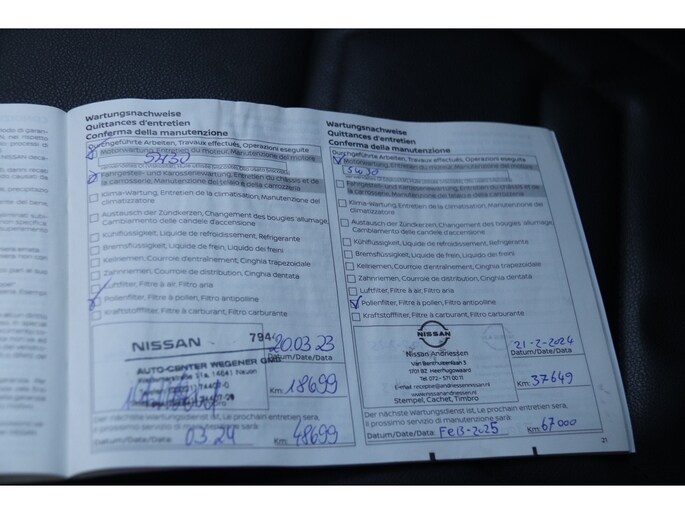 Wartungsnachweise
Quittances d'entretien
Conferma della manutenzione
Durchgeführte Arbeiten, Travaux effectués, Operazioni eseguite
Motorwartung, Entretien du moteur, Manutenzione del motore
5W30
Fahrgestell- und Karosseriewartung, Entretien du châssis et de
la carrosserie, Manutenzione del telaio e della carrozzeria
Klima-Wartung, Entretien de la climatisation, Manutenzione del
climatizzatore
Austausch der Zündkerzen, Changement des bougies allumage,
Cambiamento delle candele d'accensione
Künflüssigkeit, Liquide de refroidissement, Refrigerante
Bremsflüssigkeit, Liquide de frein, Liquido dei freini
Keilriemen, Courroie d'entraînement, Cinghia trapezoidale
Zahnriemen, Courroie de distribution, Cinghia dentata
Luftfilter, Filtre à air, Filtro aria
Pollenfilter, Filtre à pollen, Filtro antipolline
Kraftstofffilter, Filtre à carburant, Filtro carburante
NISSAN 794
AUTO-CENTER WEGENER
14641 Nauen
20.03.23
Datum/Date/Data
Km: 18699
Der nächste Wartungsdienst ist, Le prochain entretien sera,
Il prossimo servizio di manutenzione sarà:
Datum/Date/Data: 03 24 Km: 48699
Wartungsnachweise
Quittances d'entretien
Conferma della manutenzione
Durchgeführte Arbeiten, Travaux effectués, Operazioni eseguite
Motorwartung, Entretien du moteur, Manutenzione del motore
5W30
Fahrgestell- und Karosseriewartung, Entretien du châssis et de
la carrosserie, Manutenzione del telaio e della carrozzeria
Klima-Wartung, Entretien de la climatisation, Manutenzione del
climatizzatore
Austausch der Zündkerzen, Changement des bougies allumage,
Cambiamento delle candele d'accensione
Künflüssigkeit, Liquide de refroidissement, Refrigerante
Bremsflüssigkeit, Liquide de frein, Liquido dei freini
Keilriemen, Courroie d'entraînement, Cinghia trapezoidale
Zahnriemen, Courroie de distribution, Cinghia dentata
Luftfilter, Filtre à air, Filtro aria
Pollenfilter, Filtre à pollen, Filtro antipolline
Kraftstofffilter, Filtre à carburant, Filtro carburante
NISSAN
Nissan Andriessen
1701 BZ Heerhugowaard
Tel 072 - 571 00 11
Stempel, Cachet, Timbro
21-2-2024
Datum/Date/Data
Km: 37649
Der nächste Wartungsdienst ist, Le prochain entretien sera,
Il prossimo servizio di manutenzione sarà:
Datum/Date/Data: FEB-2025 Km: 67000
21